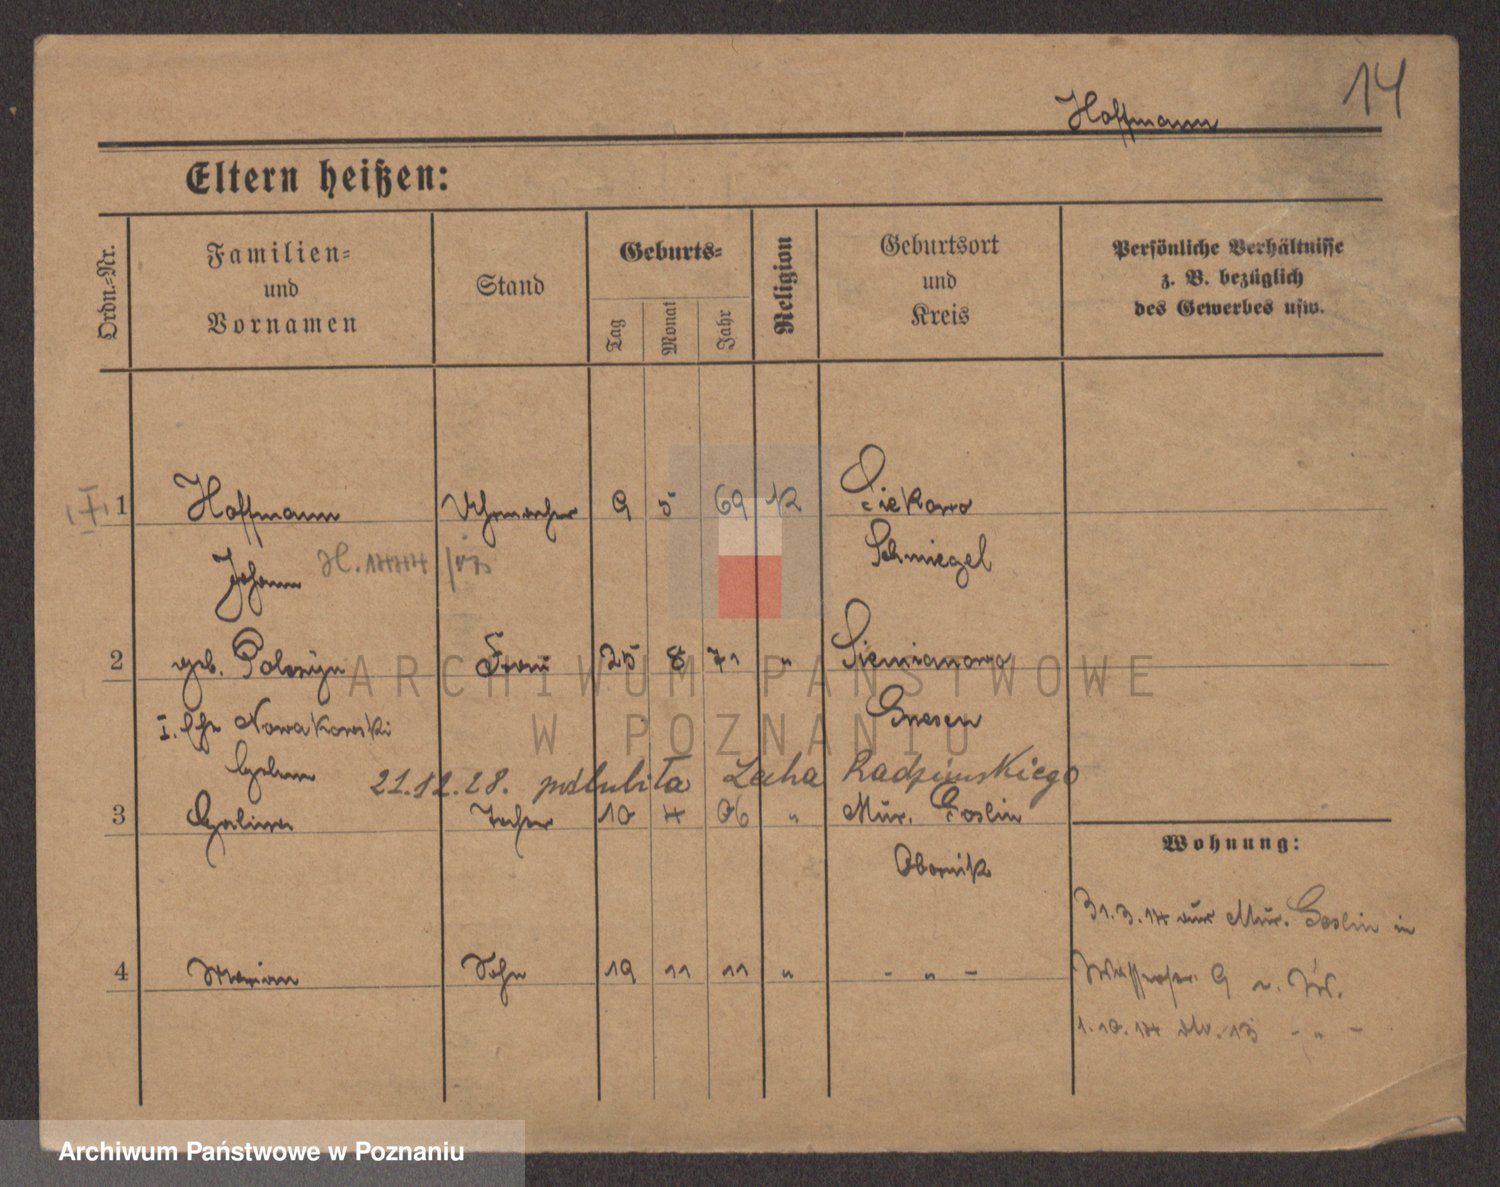 14
Hoffmann
Eltern heißen:
Ordn.-Nr.
Familien- und Vornamen
Stand
Geburts-
Tag
Monat
Jahr
Religion
Geburtsort und Kreis
Persönliche Verhältnisse z. B. bezüglich des Gewerbes usw.
1 Hoffmann Uhrmacher 9 5 69 K Siekowo
Johann Schmiegel
2 geb. Frau 25 8 71 " Siemianowo
I. Ehe Nowakowski Gnesen
21.12.28. poślubiła Lecha Radzimskiego
3 Halina Tochter 10 4 06 " Mur. Goslin
Obornik
Wohnung:
31.3.14 aus Mur. Goslin in
4 Marian Sohn 19 11 11 " - " -
9
1.10.14 - " -
ARCHIWUM PAŃSTWOWE
W POZNANIU
Archiwum Państwowe w Poznaniu